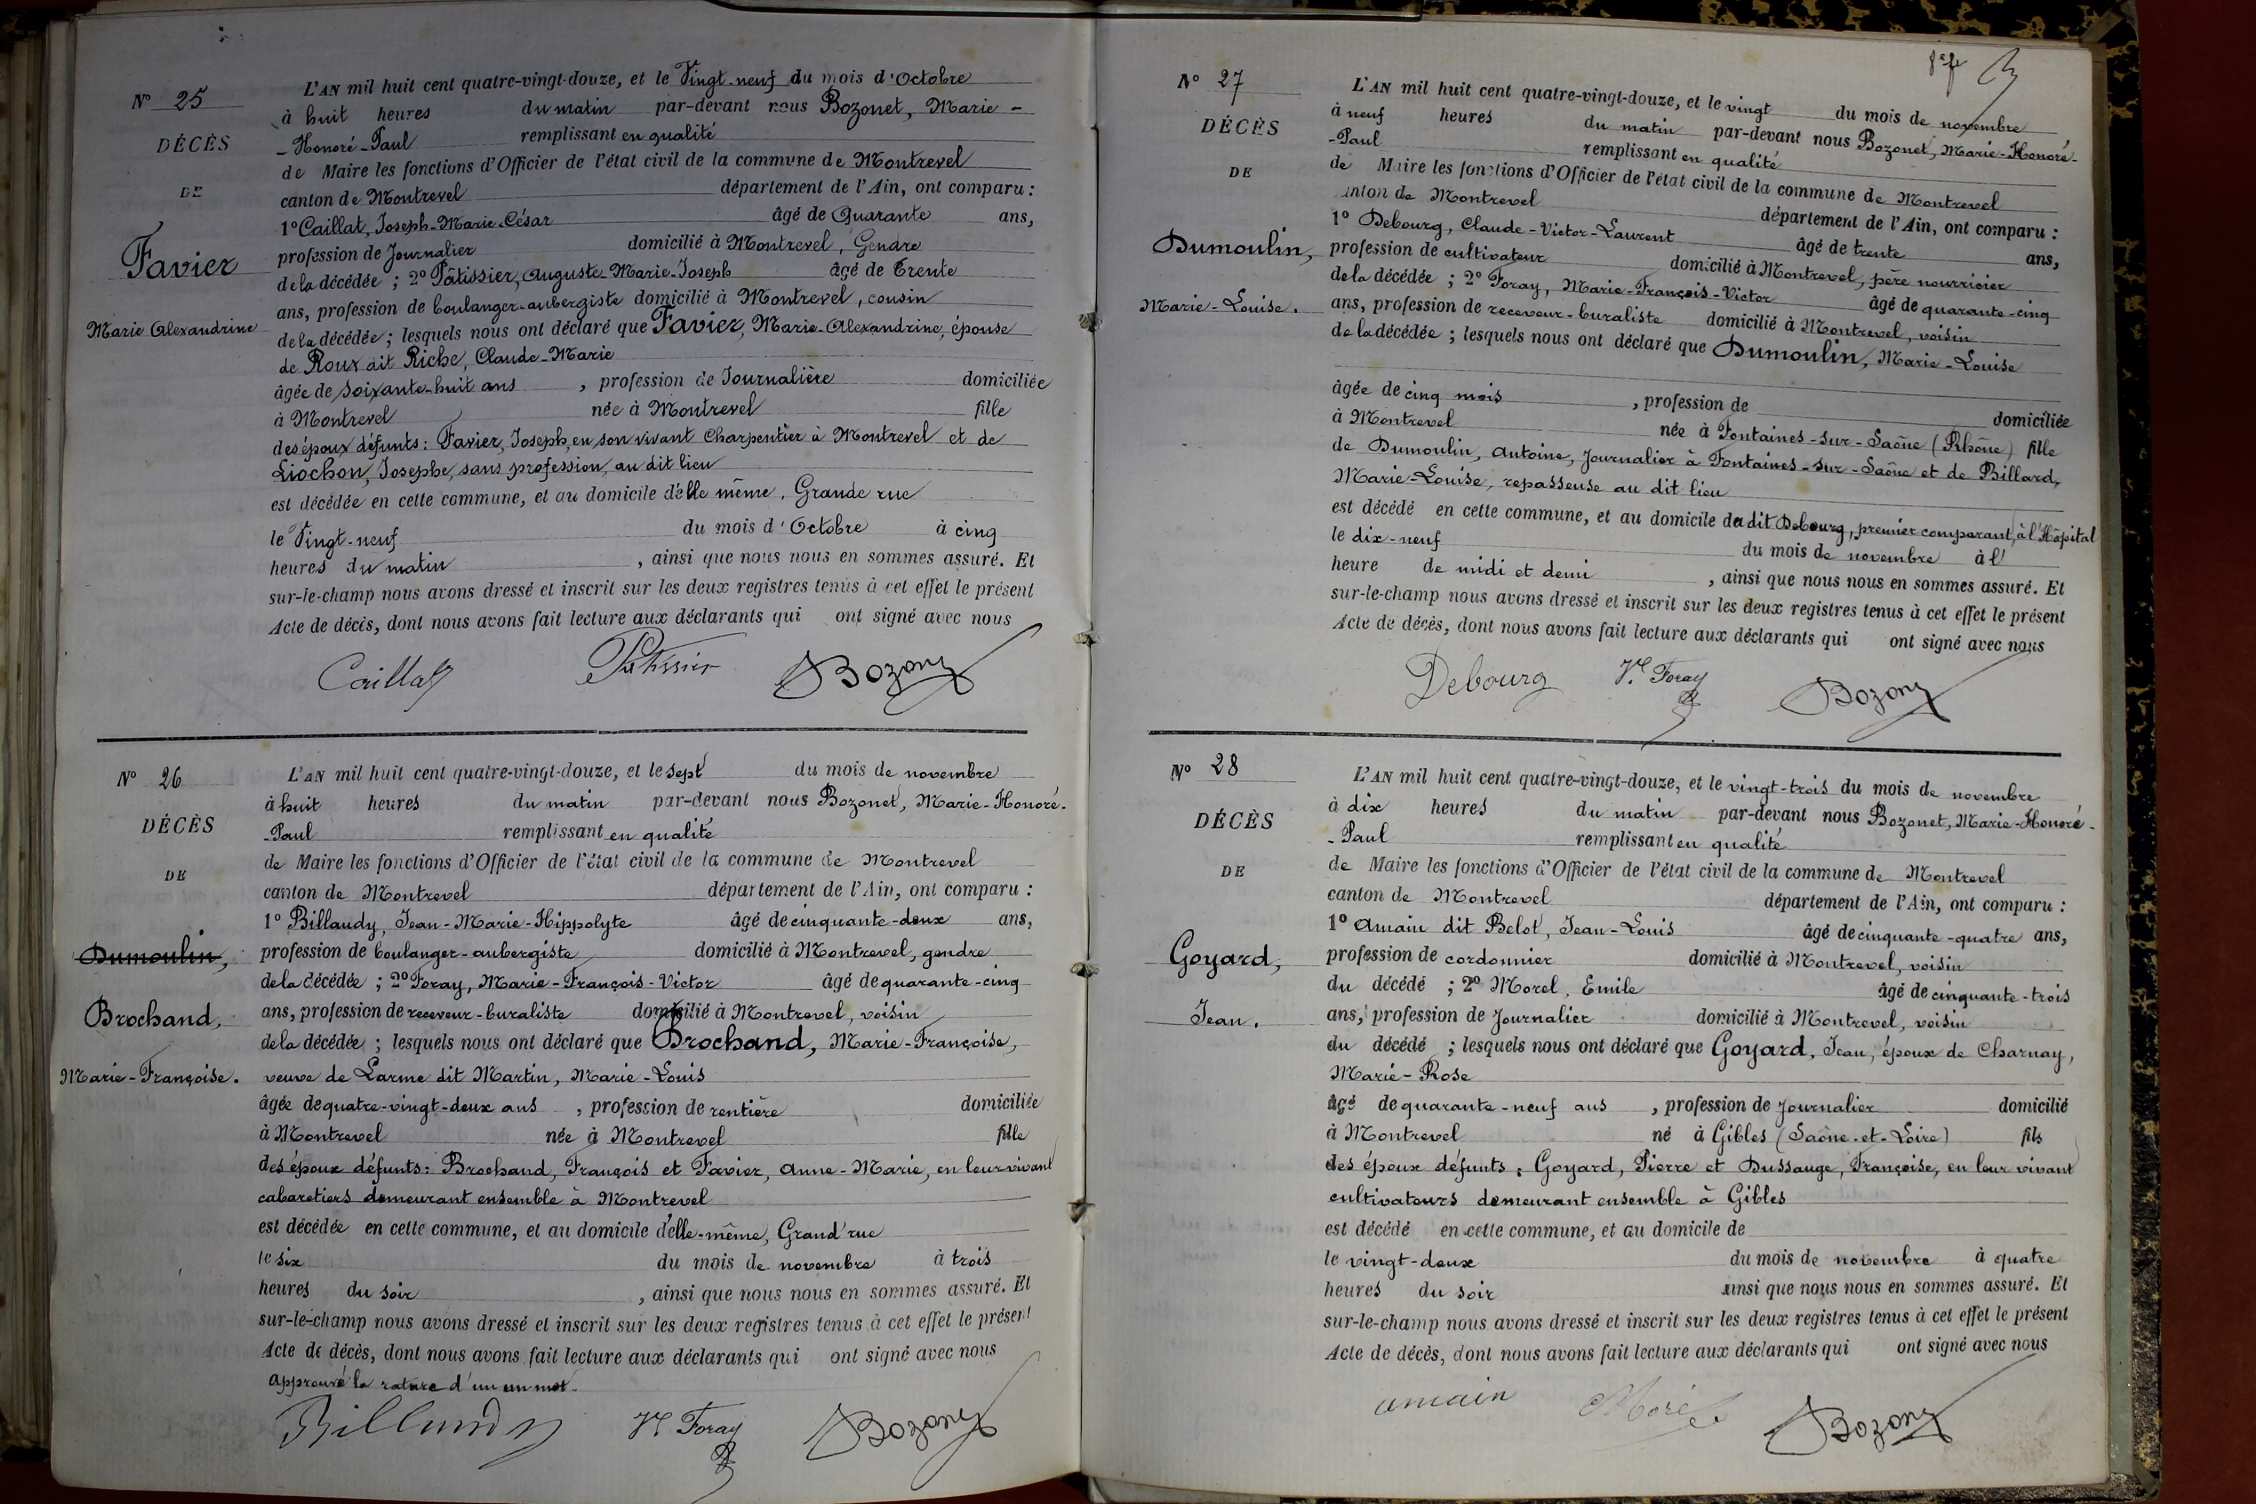 N° 25
DÉCÈS
DE
Favier
Marie Alexandrine
L'AN mil huit cent quatre-vingt-douze, et le Vingt-neuf du mois d'Octobre
à huit heures du matin par-devant nous Bozonet, Marie-
-Honoré-Paul remplissant en qualité
de Maire les fonctions d'Officier de l'état civil de la commune de Montrevel
canton de Montrevel département de l'Ain, ont comparu :
1° Caillat, Joseph-Marie-César âgé de Quarante ans,
profession de Journalier domicilié à Montrevel, Gendre
de la décédée ; 2° Pâtissier, Auguste-Marie-Joseph âgé de Trente
ans, profession de boulanger-aubergiste domicilié à Montrevel, cousin
de la décédée ; lesquels nous ont déclaré que Favier, Marie-Alexandrine, épouse
de Roux dit Riche, Claude-Marie
âgée de soixante-huit ans , profession de Journalière domiciliée
à Montrevel née à Montrevel fille
des époux défunts : Favier, Joseph, en son vivant Charpentier à Montrevel et de
Liochon, Josephe, sans profession, au dit lieu
est décédée en cette commune, et au domicile d'elle même, Grande rue
le Vingt-neuf du mois d'Octobre à cinq
heures du matin , ainsi que nous nous en sommes assuré. Et
sur-le-champ nous avons dressé et inscrit sur les deux registres tenus à cet effet le présent
Acte de décès, dont nous avons fait lecture aux déclarants qui ont signé avec nous
Caillat Patissier Bozonet
N° 26
DÉCÈS
DE
Dumoulin,
Brochand,
Marie-Françoise.
L'AN mil huit cent quatre-vingt-douze, et le sept du mois de novembre
à huit heures du matin par-devant nous Bozonet, Marie-Honoré-
-Paul remplissant en qualité
de Maire les fonctions d'Officier de l'état civil de la commune de Montrevel
canton de Montrevel département de l'Ain, ont comparu :
1° Billaudy, Jean-Marie-Hippolyte âgé de cinquante-deux ans,
profession de boulanger-aubergiste domicilié à Montrevel, gendre
de la décédée ; 2° Foray, Marie-François-Victor âgé de quarante-cinq
ans, profession de receveur-buraliste domicilié à Montrevel, voisin
de la décédée ; lesquels nous ont déclaré que Brochand, Marie-Françoise,
veuve de Larme dit Martin, Marie-Louis
âgée de quatre-vingt-deux ans , profession de rentière domiciliée
à Montrevel née à Montrevel fille
des époux défunts : Brochand, François et Favier, Anne-Marie, en leur vivant
cabaretiers demeurant ensemble à Montrevel
est décédée en cette commune, et au domicile d'elle-même, Grand'rue
le six du mois de novembre à trois
heures du soir , ainsi que nous nous en sommes assuré. Et
sur-le-champ nous avons dressé et inscrit sur les deux registres tenus à cet effet le présent
Acte de décès, dont nous avons fait lecture aux déclarants qui ont signé avec nous
Approuvé la rature d'un un mot.
Billaudy Vr Foray Bozonet
N° 27
DÉCÈS
DE
Dumoulin,
Marie-Louise.
L'AN mil huit cent quatre-vingt-douze, et le vingt du mois de novembre
à neuf heures du matin par-devant nous Bozonet, Marie-Honoré-
-Paul remplissant en qualité
de Maire les fonctions d'Officier de l'état civil de la commune de Montrevel
canton de Montrevel département de l'Ain, ont comparu :
1° Debourg, Claude-Victor-Laurent âgé de trente ans,
profession de cultivateur domicilié à Montrevel, père nourricier
de la décédée ; 2° Foray, Marie-François-Victor âgé de quarante-cinq
ans, profession de receveur-buraliste domicilié à Montrevel, voisin
de la décédée ; lesquels nous ont déclaré que Dumoulin, Marie-Louise
âgée de cinq mois , profession de domiciliée
à Montrevel née à Fontaines-sur-Saône (Rhône) fille
de Dumoulin, Antoine, Journalier à Fontaines-sur-Saône et de Billard,
Marie-Louise, repasseuse au dit lieu
est décédé en cette commune, et au domicile du dit Debourg, premier comparant, à l'Hôpital
le dix-neuf du mois de novembre à l'
heure de midi et demi , ainsi que nous nous en sommes assuré. Et
sur-le-champ nous avons dressé et inscrit sur les deux registres tenus à cet effet le présent
Acte de décès, dont nous avons fait lecture aux déclarants qui ont signé avec nous
Debourg Vr Foray Bozonet
N° 28
DÉCÈS
DE
Goyard,
Jean.
L'AN mil huit cent quatre-vingt-douze, et le vingt-trois du mois de novembre
à dix heures du matin par-devant nous Bozonet, Marie-Honoré-
-Paul remplissant en qualité
de Maire les fonctions d'Officier de l'état civil de la commune de Montrevel
canton de Montrevel département de l'Ain, ont comparu :
1° Amain dit Belot, Jean-Louis âgé de cinquante-quatre ans,
profession de cordonnier domicilié à Montrevel, voisin
du décédé ; 2° Morel, Emile âgé de cinquante-trois
ans, profession de Journalier domicilié à Montrevel, voisin
du décédé ; lesquels nous ont déclaré que Goyard, Jean, époux de Charnay,
Marie-Rose
âgé de quarante-neuf ans , profession de Journalier domicilié
à Montrevel né à Gibles (Saône-et-Loire) fils
des époux défunts : Goyard, Pierre et Dussauge, Françoise, en leur vivant
cultivateurs demeurant ensemble à Gibles
est décédé en cette commune, et au domicile de
le vingt-deux du mois de novembre à quatre
heures du soir ainsi que nous nous en sommes assuré. Et
sur-le-champ nous avons dressé et inscrit sur les deux registres tenus à cet effet le présent
Acte de décès, dont nous avons fait lecture aux déclarants qui ont signé avec nous
amain Morel Bozonet